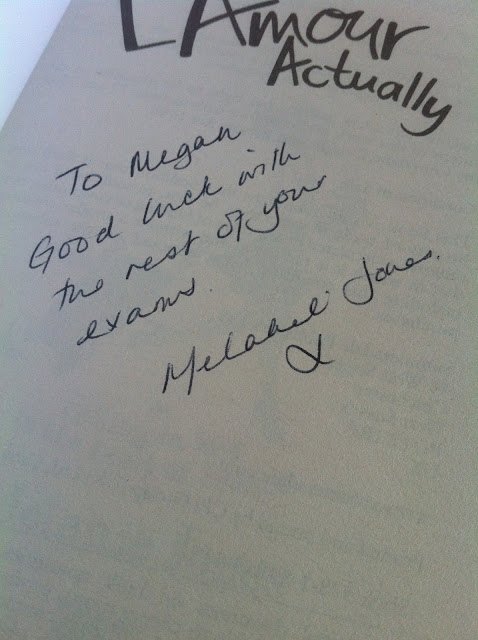 L'Amour
Actually
To Megan
Good luck with
the rest of your
exams.
Melanie Jones.
X